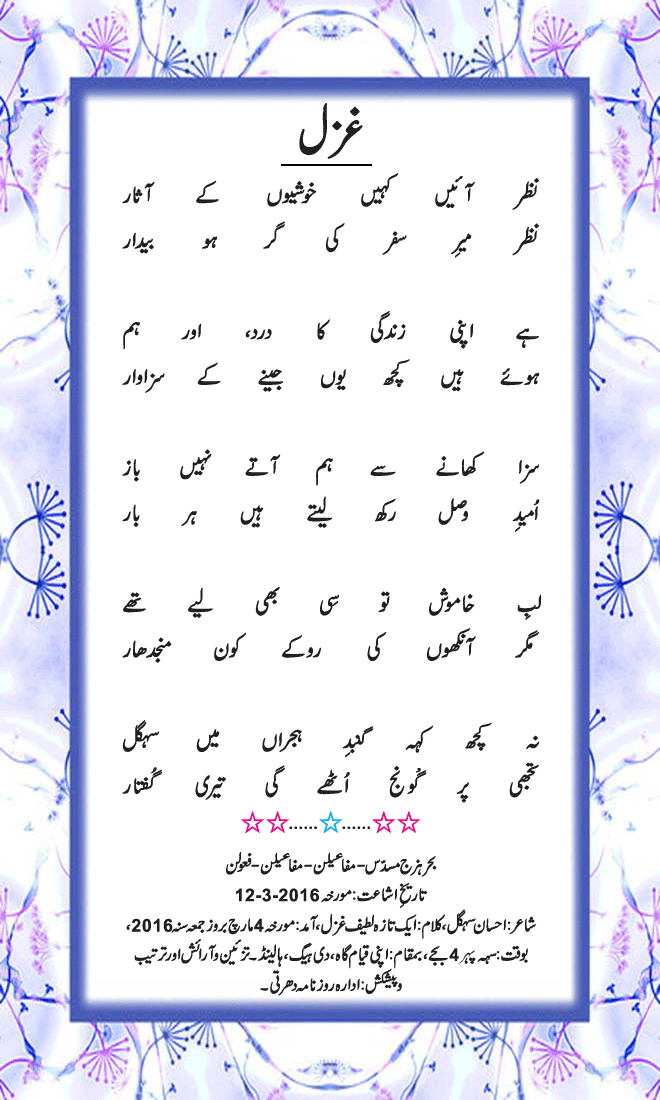 غزل
نظر آئیں کہیں خوشیوں کے آثار
نظر میرِ سفر کی گر ہو بیدار
ہے اپنی زندگی کا درد، اور ہم
ہوئے ہیں کچھ یوں جینے کے سزاوار
سزا کھانے سے ہم آتے نہیں باز
اُمیدِ وصل رکھ لیتے ہیں ہر بار
لبِ خاموش تو سی بھی لیے تھے
مگر آنکھوں کی روکے کون منجدھار
نہ کچھ کہہ گنبدِ ہجراں میں سہگل
تجھی پر گونج اُٹھے گی تیری گُفتار
☆☆......☆......☆☆
بحر ہزج مسدّس – مفاعیلن – مفاعیلن – فعولن
تاریخِ اشاعت: مورخہ 12-3-2016
شاعر: احسان سہگل، کلام: ایک تازہ لطیف غزل، آمد: مورخہ 4 مارچ بروز جمعہ سنہ 2016،
بوقت: سہہ پہر 4 بجے، بمقام: اپنی قیام گاہ، دی ہیگ، ہالینڈ۔ تزئین و آرائش اور ترتیب
و پیشکش: ادارہ روزنامہ دھرتی۔